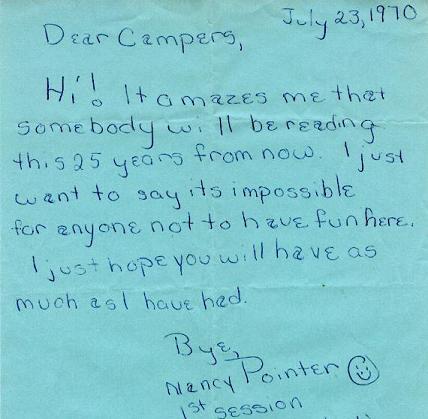 July 23, 1970
Dear Campers,
Hi! It amazes me that
somebody will be reading
this 25 years from now. I just
want to say its impossible
for anyone not to have fun here.
I just hope you will have as
much as I have had.
Bye,
Nancy Pointer
1st SESSION